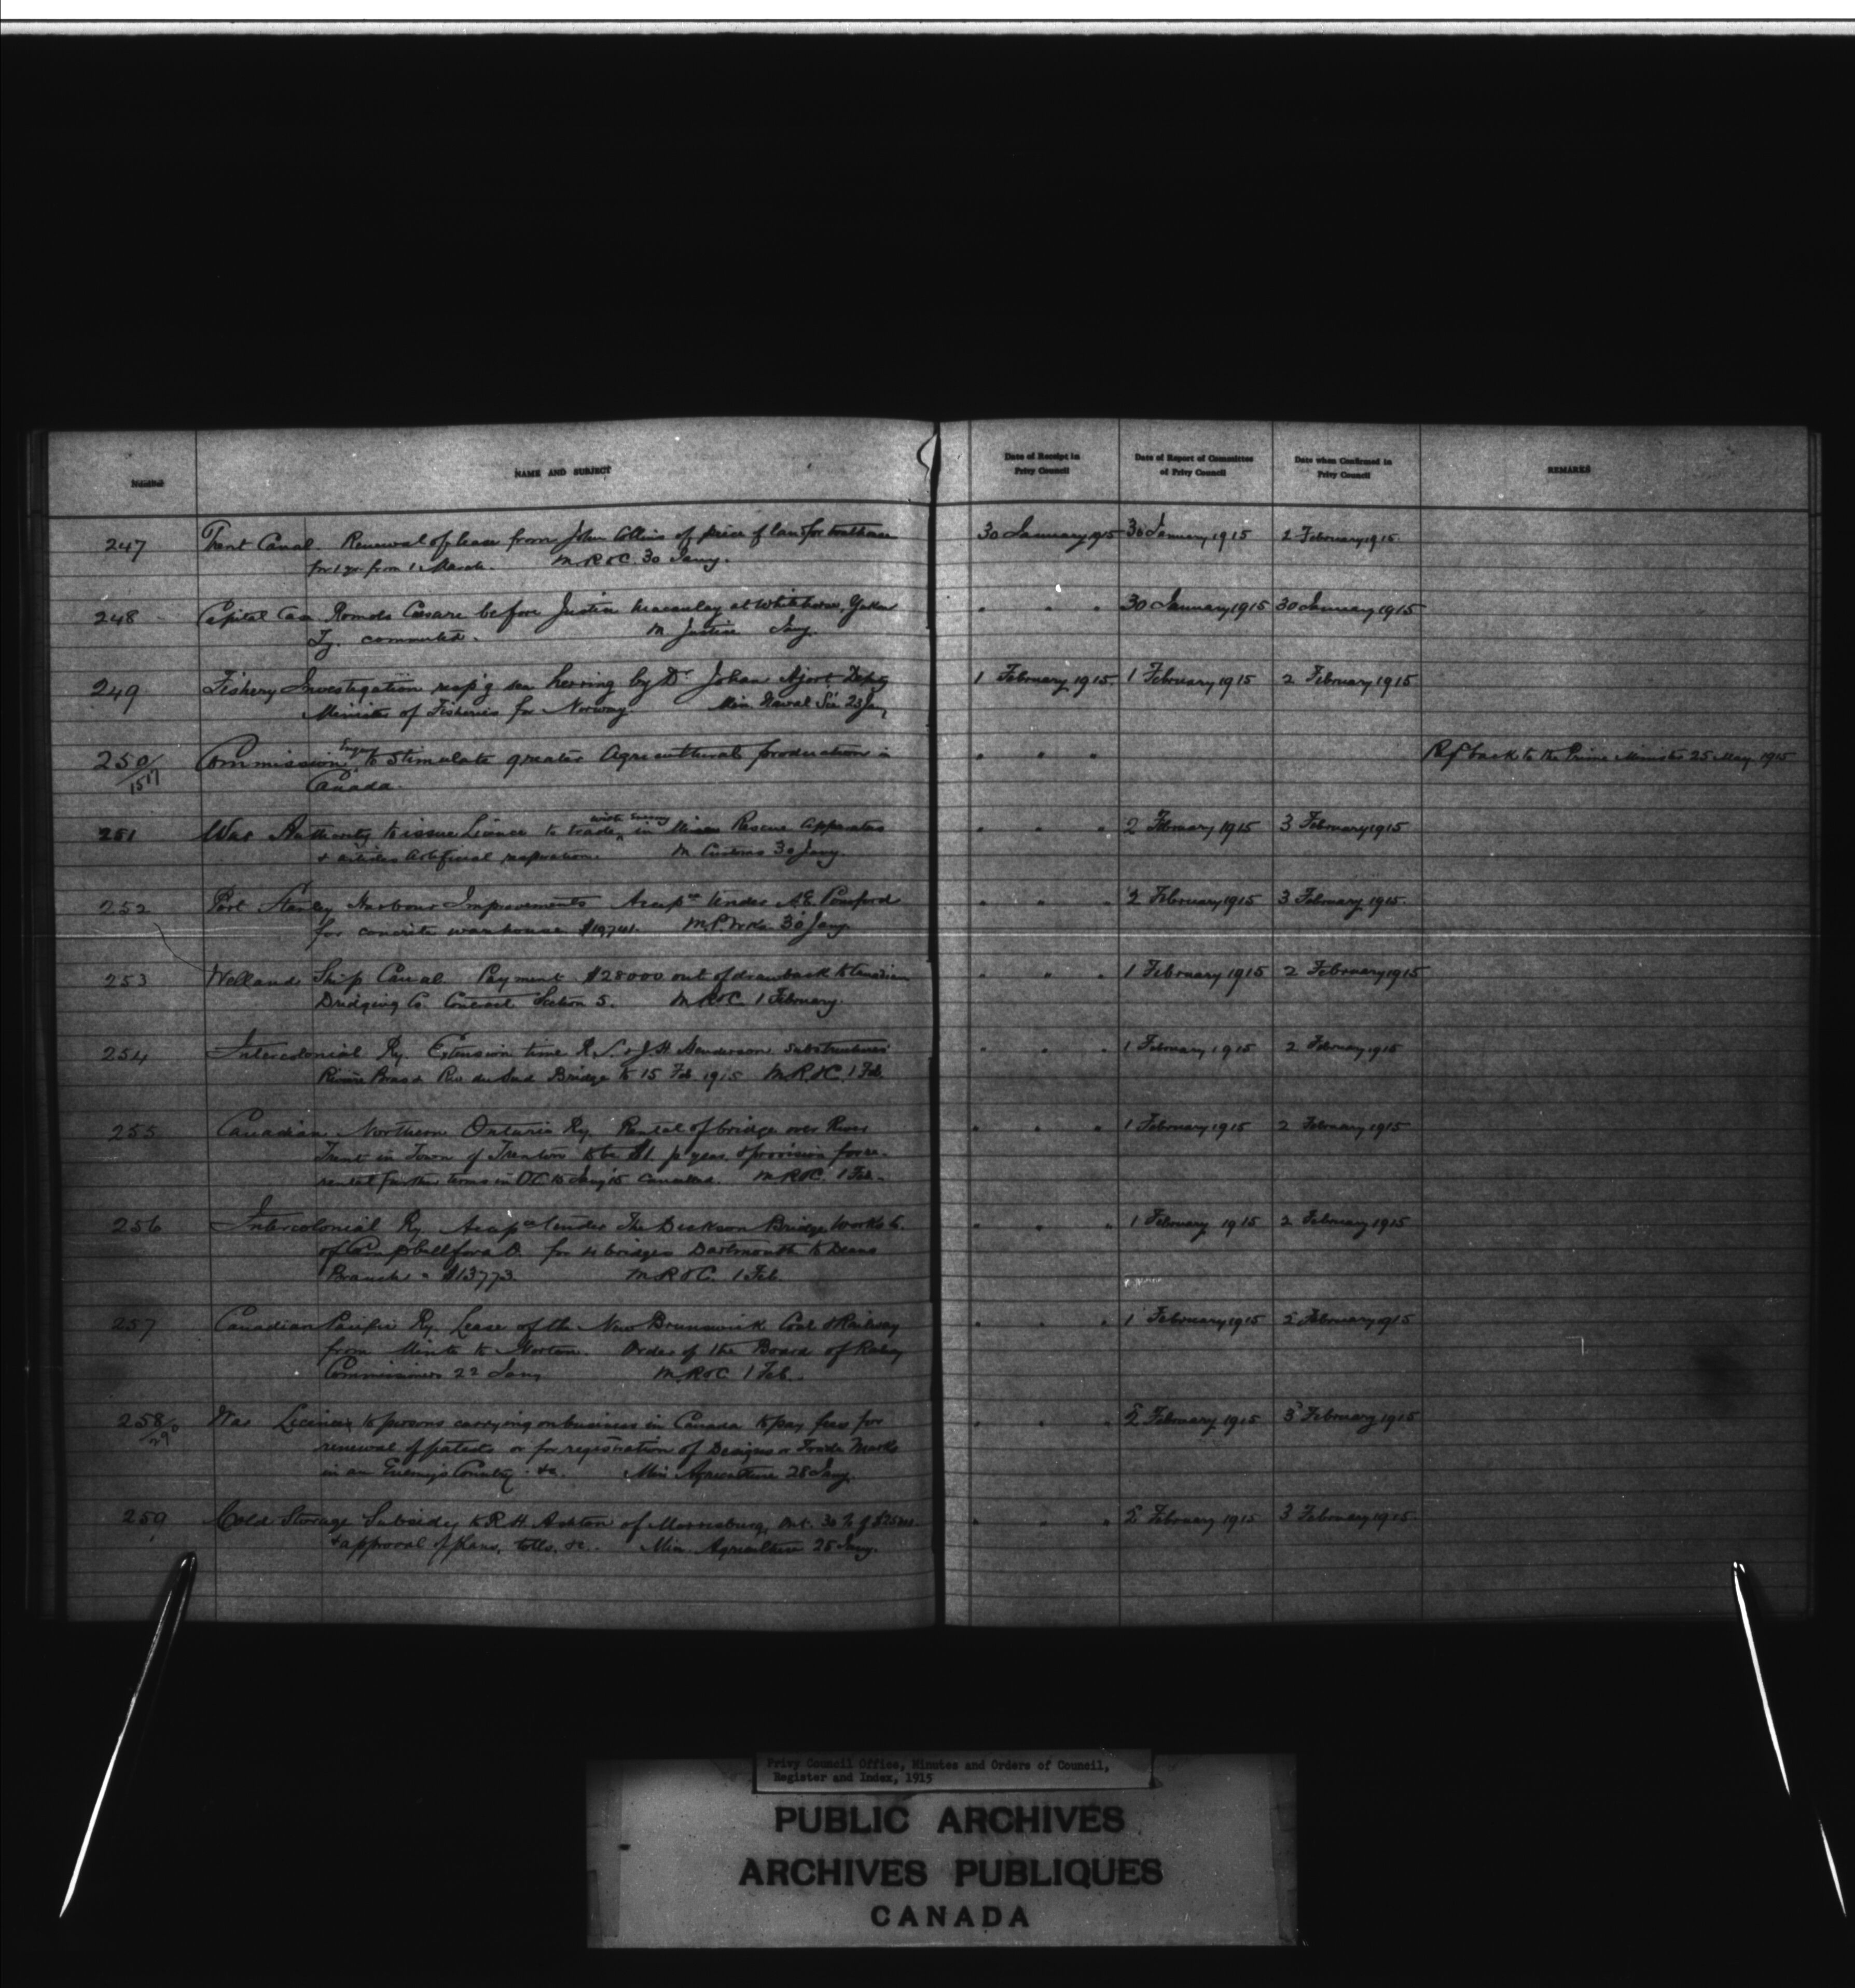 Number
NAME AND SUBJECT
Date of Receipt in Privy Council
Date of Report of Committee of Privy Council
Date when Confirmed in Privy Council
REMARKS
247 Trent Canal. Renewal of lease from John Collins of piece of land for boathouse 30 January 1915 30 January 1915 2 February 1915
for 1 yr from 1 March. M. R & C. 30 Jany.
248 Capital Case Romolo Cesare before Justice Macaulay at Whitehorse, Yukon " " " 30 January 1915 30 January 1915
Ty. commuted. M Justice Jany.
249 Fishery Investigation resp'g sea herring by Dr Johan Hjort Depty 1 February 1915 1 February 1915 2 February 1915
Minister of Fisheries for Norway. Min Naval Sce 23 Jany
250/1517 Commission to Stimulate greater Agricultural production in " " " Ref back to the Prime Minister 25 May 1915
Canada.
251 War Authority to issue Licence to trade with Enemy in Mines Rescue Apparatus " " " 2 February 1915 3 February 1915
& articles Artificial respiration. M Customs 30 Jany.
252 Port Stanley Harbour Improvements Accepce tender A.E. Ponsford " " " 2 February 1915 3 February 1915
for concrete warehouse $19741. M P. Wks. 30 Jany
253 Welland Ship Canal Payment $28000 out of drawback to Canadian " " " 1 February 1915 2 February 1915
Dridging Co. Contract Section 5. M R & C 1 February.
254 Intercolonial Ry. Extension time R. S. & J H Henderson substructures " " " 1 February 1915 2 February 1915
Riviere Bras de Riv du Sud Bridge to 15 Feb. 1915 M. R. & C. 1 Feb.
255 Canadian Northern Ontario Ry. Rental of bridge over River " " " 1 February 1915 2 February 1915
Trent in Town of Trenton to be $1. p year & provision for re-
rental further terms in OC 15 Jany 15 cancelled. M R & C. 1 Feb.
256 Intercolonial Ry. Accepce tender The Dickson Bridge Works Co. " " " 1 February 1915 2 February 1915
of Campbellford O. for 4 bridges Dartmouth to Deans
Branch - $13773. M R & C. 1 Feb
257 Canadian Pacific Ry. Lease of the New Brunswick Coal & Railway " " " 1 February 1915 2 February 1915
from Minto to Norton. Order of the Board of Railway
Commissioners 22 Jany M. R & C 1 Feb.
258/290 War Licences to persons carrying on business in Canada to pay fees for " " " 2 February 1915 3 February 1915
renewal of patents or for registration of Designs or Trade Marks
in an Enemy's Country &c. Min Agriculture 28 Jany.
259 Cold Storage Subsidy to R. H. Ashton of Morrisburg, Ont. 30% of " " " 2 February 1915 3 February 1915
& approval of plans, tolls, &c. Min Agriculture 25 Jany.
Privy Council Office, Minutes and Orders of Council,
Register and Index, 1915
PUBLIC ARCHIVES
ARCHIVES PUBLIQUES
CANADA